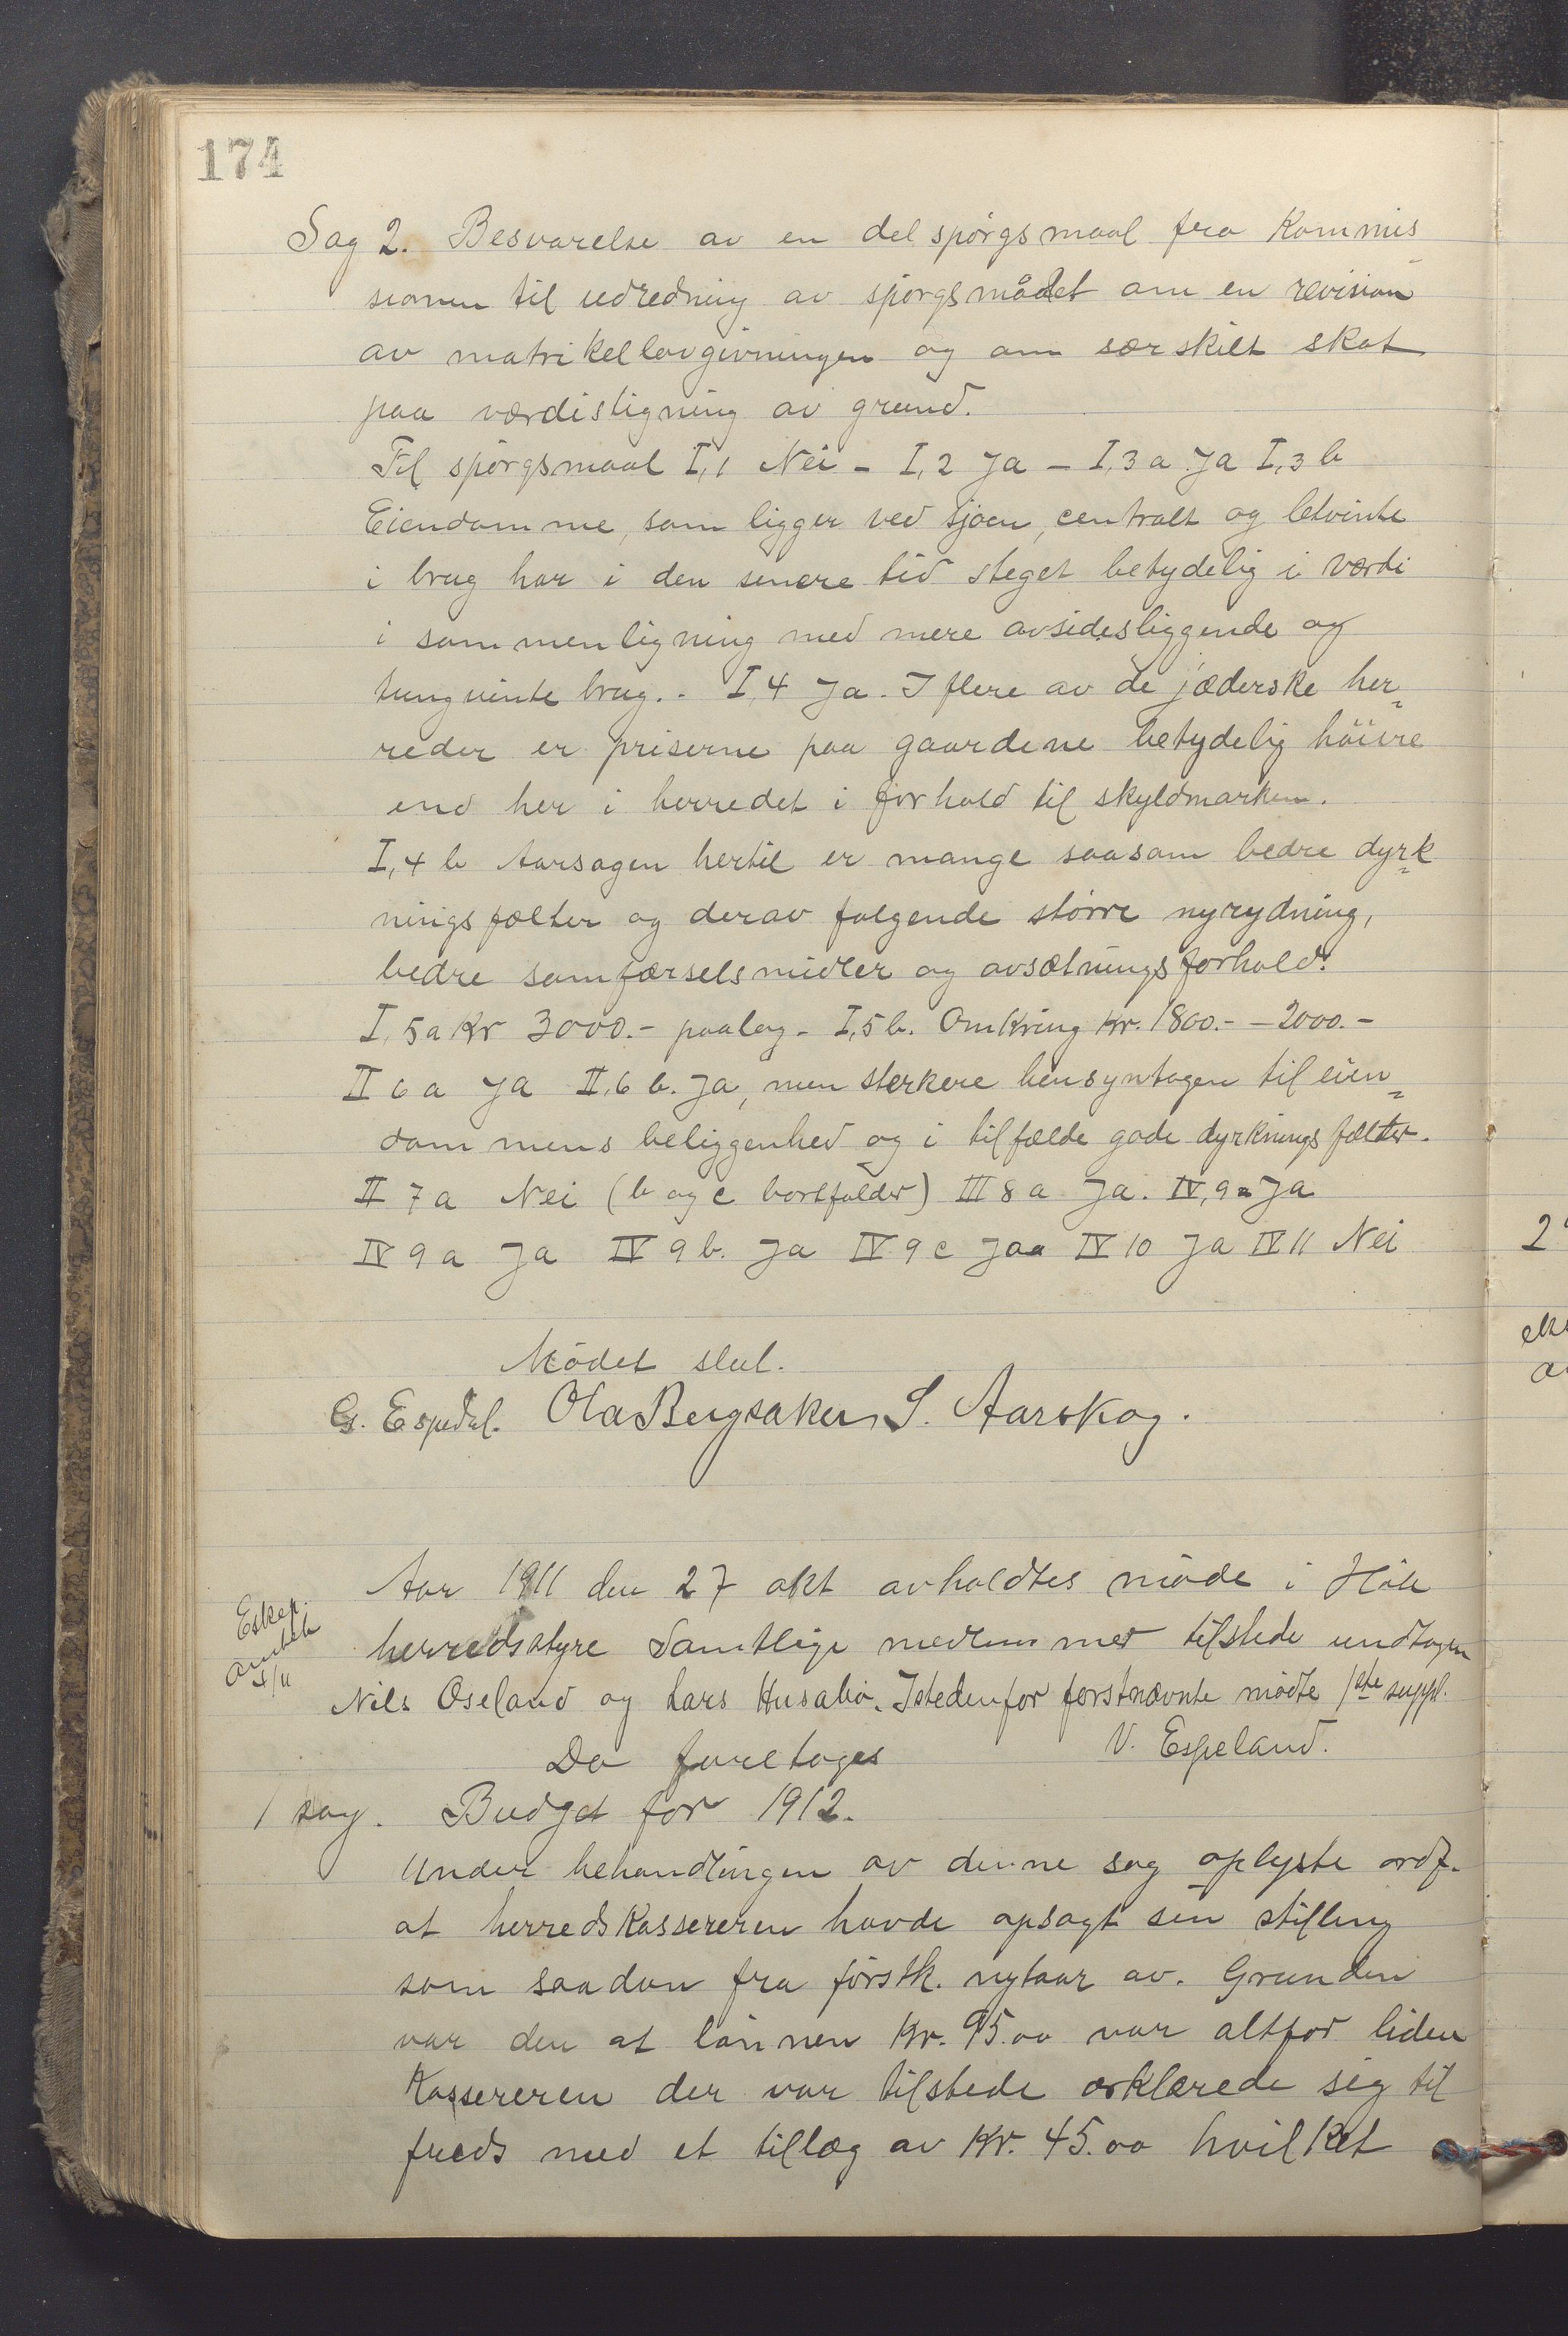 174
Sag 2. Besvarelse av en del spørgsmaal fra Kommis
sionen til udredning av spørgsmålet om en revision
av matrikellovgivningen og om særskilt skat
paa værdistigning av grund.
Til spørgsmaal I,1 Nei - I,2 Ja - I,3 a Ja I,3 b
Eiendomme, som ligger ved sjøen, centralt og letvinte
i brug har i den senere tid steget betydelig i værdi
i sammenligning med mere avsidesliggende og
tungvinte brug. - I,4 Ja. I flere av de jæderske her=
reder er priserne paa gaardene betydelig høiere
end her i herredet i forhold til skyldmarken.
I,4 b Aarsagen hertil er mange saasom bedre dyrk=
ningsfælter og derav følgende større nyrydning,
bedre samfærselsmidler og avsætningsforhold.
I,5a Kr 3000.- paalag - I,5 b. Omkring Kr. 1800.- - 2000.-
II 6 a Ja II,6 b. Ja, men sterkere hensyntagen til eien=
dommens beliggenhed og i tilfælde gode dyrkningsfælter.
II 7 a Nei (b og c bortfalder) III 8 a Ja. IV,9a Ja
IV 9 a Ja IV 9 b. Ja IV 9 c Jaa IV 10 Ja IV 11 Nei
Mødet slut.
G. Espedal. Ola Bergsaker S. Aarskog.
Aar 1911 den 27 okt avholdtes møde i Høle
herredsstyre Samtlige medlemmer tilstede undtagen
Nils Oseland og Lars Husabø. Istedenfor førstnævnte mødte 1ste suppl.
V. Espeland.
Eskp.
amtet
4/11
Da foretages
1 sag. Budget for 1912.
Under behandlingen av denne sag oplyste ordf.
at herredskassereren havde opsagt sin stilling
som saadan fra førstk. nytaar av. Grunden
var den at lønnen Kr. 95.00 var altfor liden
Kassereren der var tilstede erklærede sig til
freds med et tillæg av Kr. 45.00 hvilket